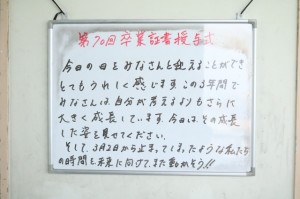 第70回卒業証書授与式
今日の日をみなさんと迎えることができ
とてもうれしく感じます。この3年間で
みなさんは、自分が考えるよりもさらに
大きく成長しています。今日はその成長
した姿を見せてください。
そして、3月2日から止まってしまったような私たち
の時間を未来に向けて、また動かそう!!